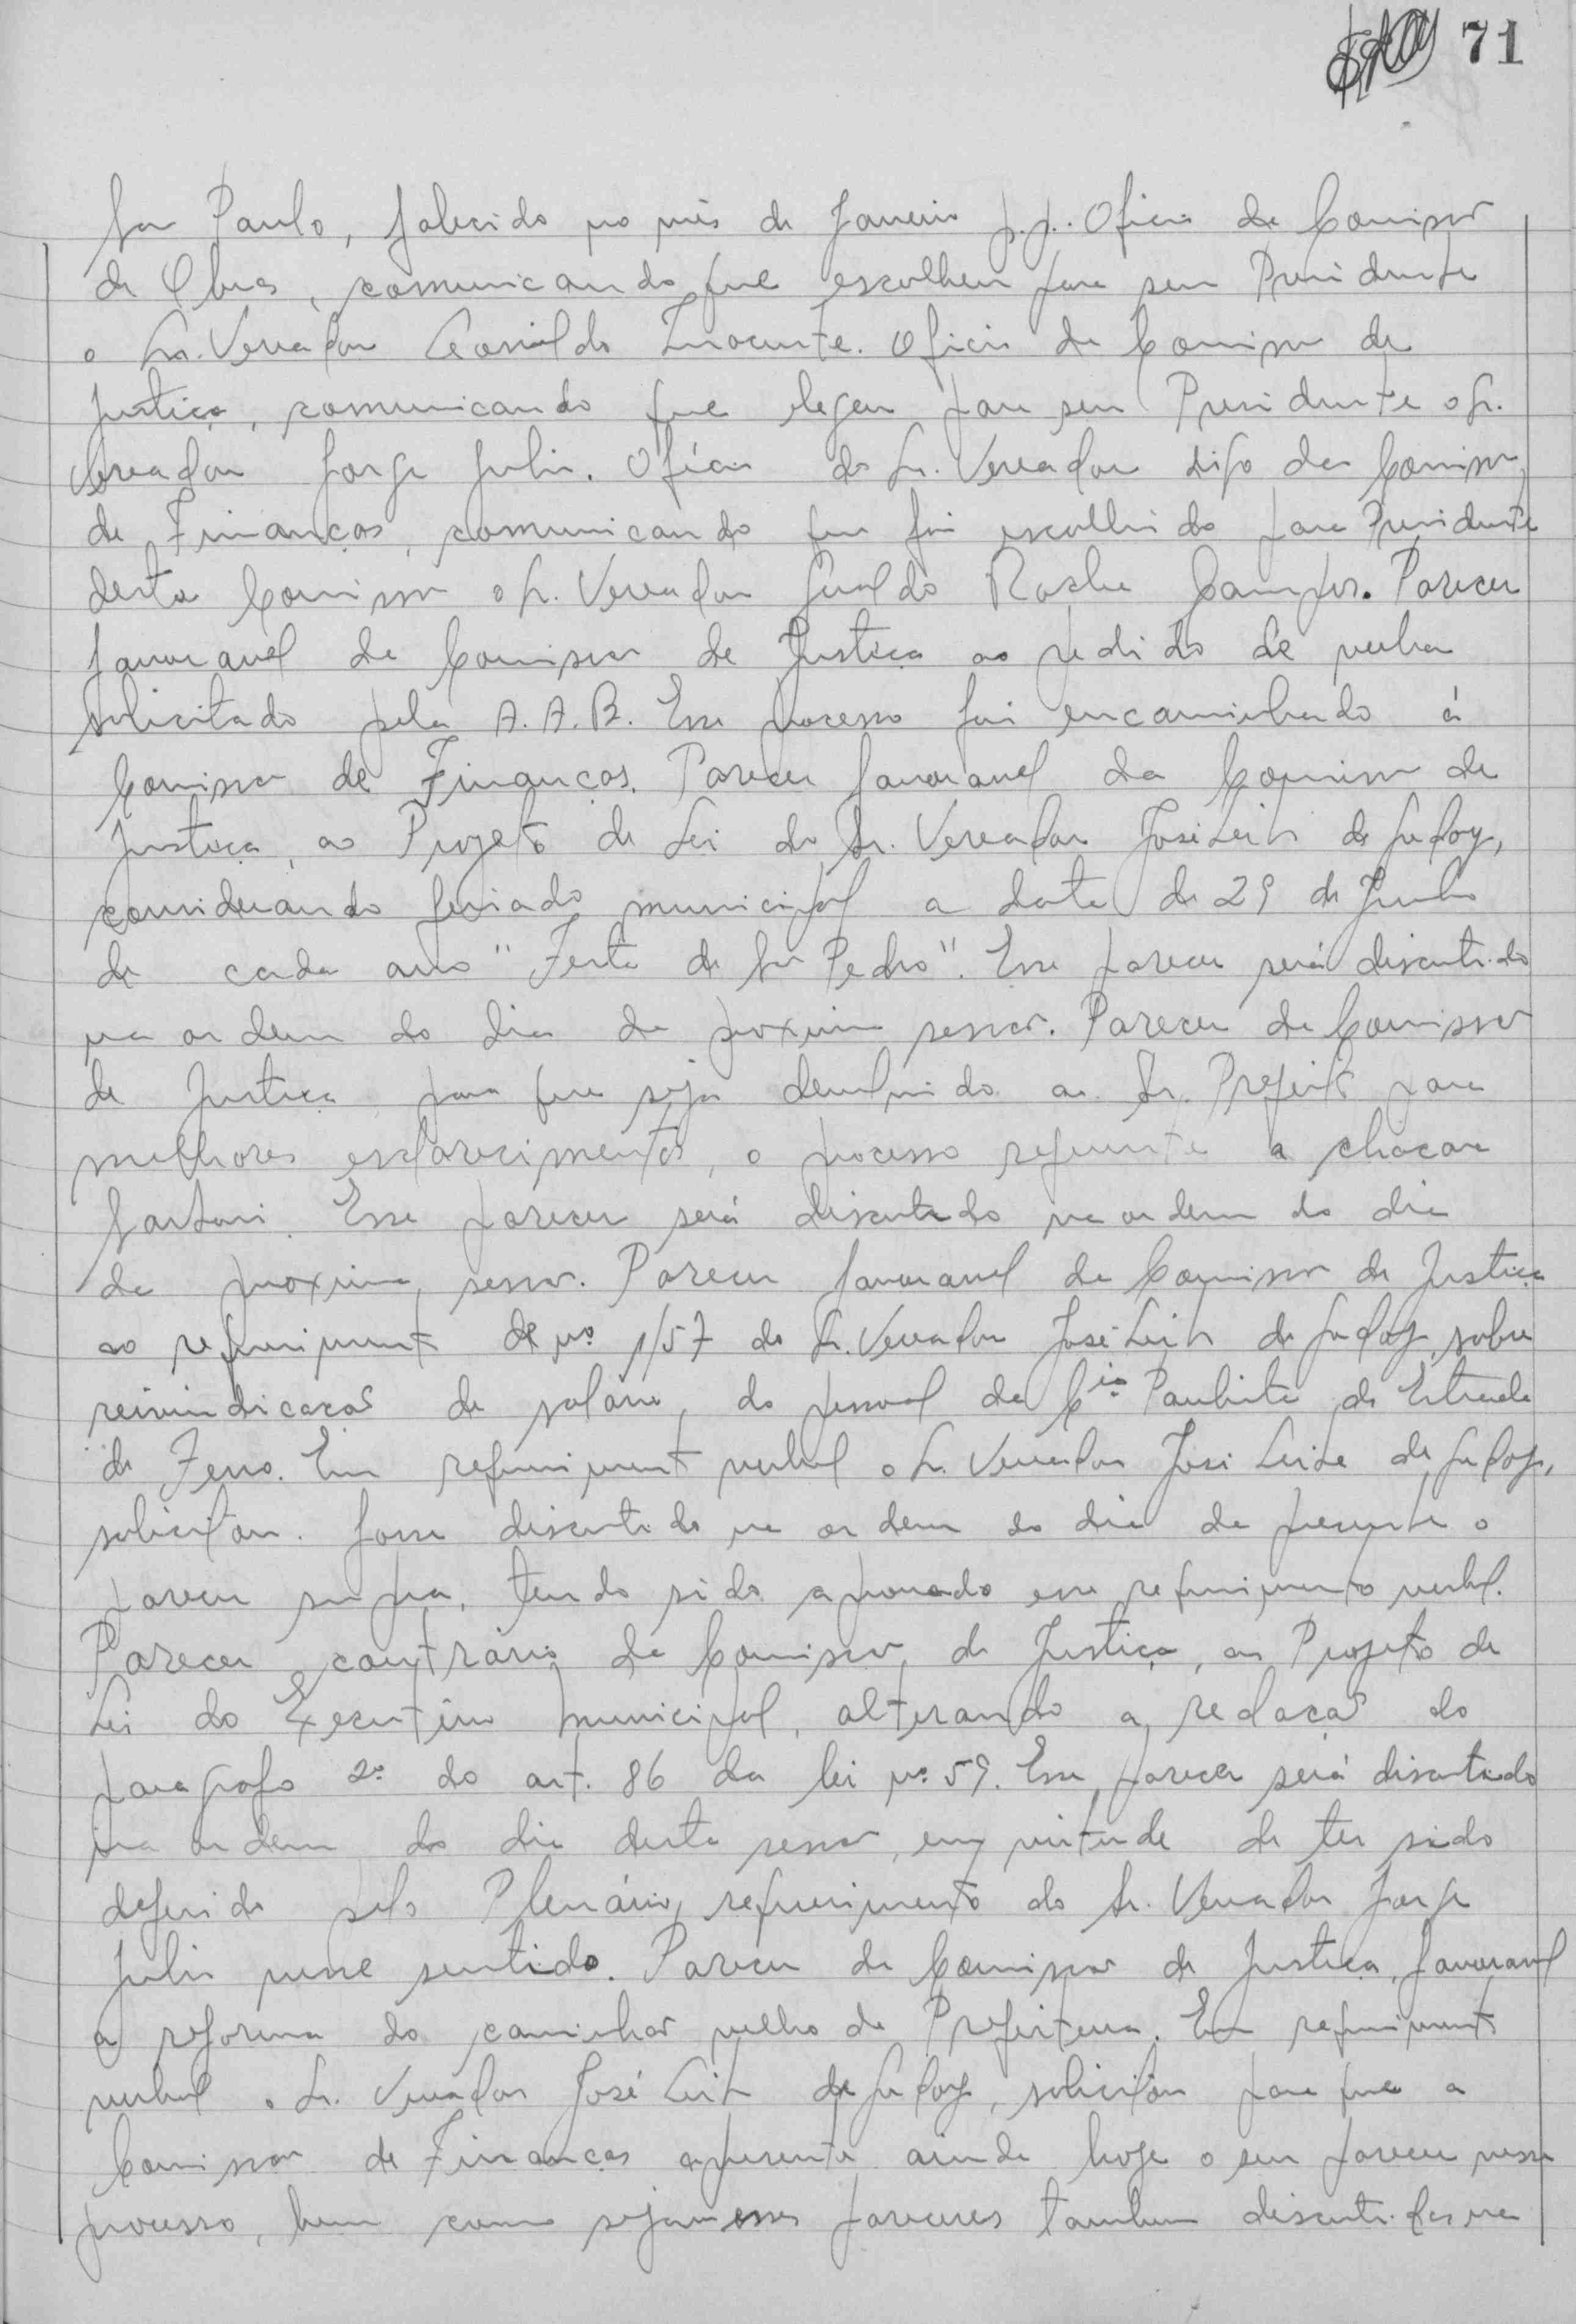 71
São Paulo, falecido no mês de Janeiro p.p. Oficio da Comissão
de Obras, comunicando que escolheu para seu Presidente
o Sr. Vereador Inocente. Oficio da Comissão de
Justiça, comunicando que elegeu para seu Presidente o Sr.
Vereador Jorge Julio. Ofício do Sr. Vereador digo da Comissão
de Finanças, comunicando que foi escolhido para Presidente
desta Comissão o Sr. Vereador Geraldo Rocha Campos. Parecer
favoravel da Comissão de Justiça ao pedido de verba
solicitado pela A.A.B. Esse processo foi encaminhado á
Comissão de Finanças. Parecer favoravel da Comissão de
Justiça, ao Projeto de Lei do Sr. Vereador José Leite de Godoy,
considerando feriado municipal a data de 29 de Junho
de cada ano "Festa de São Pedro". Esse parecer será discutido
na ordem do dia da proxima sessão. Parecer da Comissão
de Justiça para que seja devolvido ao Sr. Prefeito para
melhores esclarecimentos, o processo referente a chacara
Sartori. Esse parecer será discutido na ordem do dia
da proxima sessão. Parecer favoravel da Comissão de Justiça
ao requerimento de nº 1/57 do Sr. Vereador José Leite de Godoy, sobre
reivindicação de salário, do pessoal da Cia. Paulista de Estrada
de Ferro. Em requerimento verbal o Sr. Vereador José Leite de Godoy,
solicitou fosse discutido na ordem do dia da presente o
parecer supra, tendo sido aprovado esse requerimento verbal.
Parecer contrário da Comissão de Justiça, ao Projeto de
Lei do Executivo municipal, alterando a redação do
paragrafo 2º do art. 86 da lei nº 59. Esse parecer será discutido
na ordem do dia desta sessão, em virtude de ter sido
deferido pelo Plenário, requerimento do Sr. Vereador Jorge
Julio nesse sentido. Parecer da Comissão de Justiça, favoravel
a reforma do caminhão velho da Prefeitura. Em requerimento
verbal o Sr. Vereador José Leite de Godoy, solicitou para que a
Comissão de Finanças apresente ainda hoje o seu parecer nesse
processo, bem como sejam esses pareceres tambem discutidos na